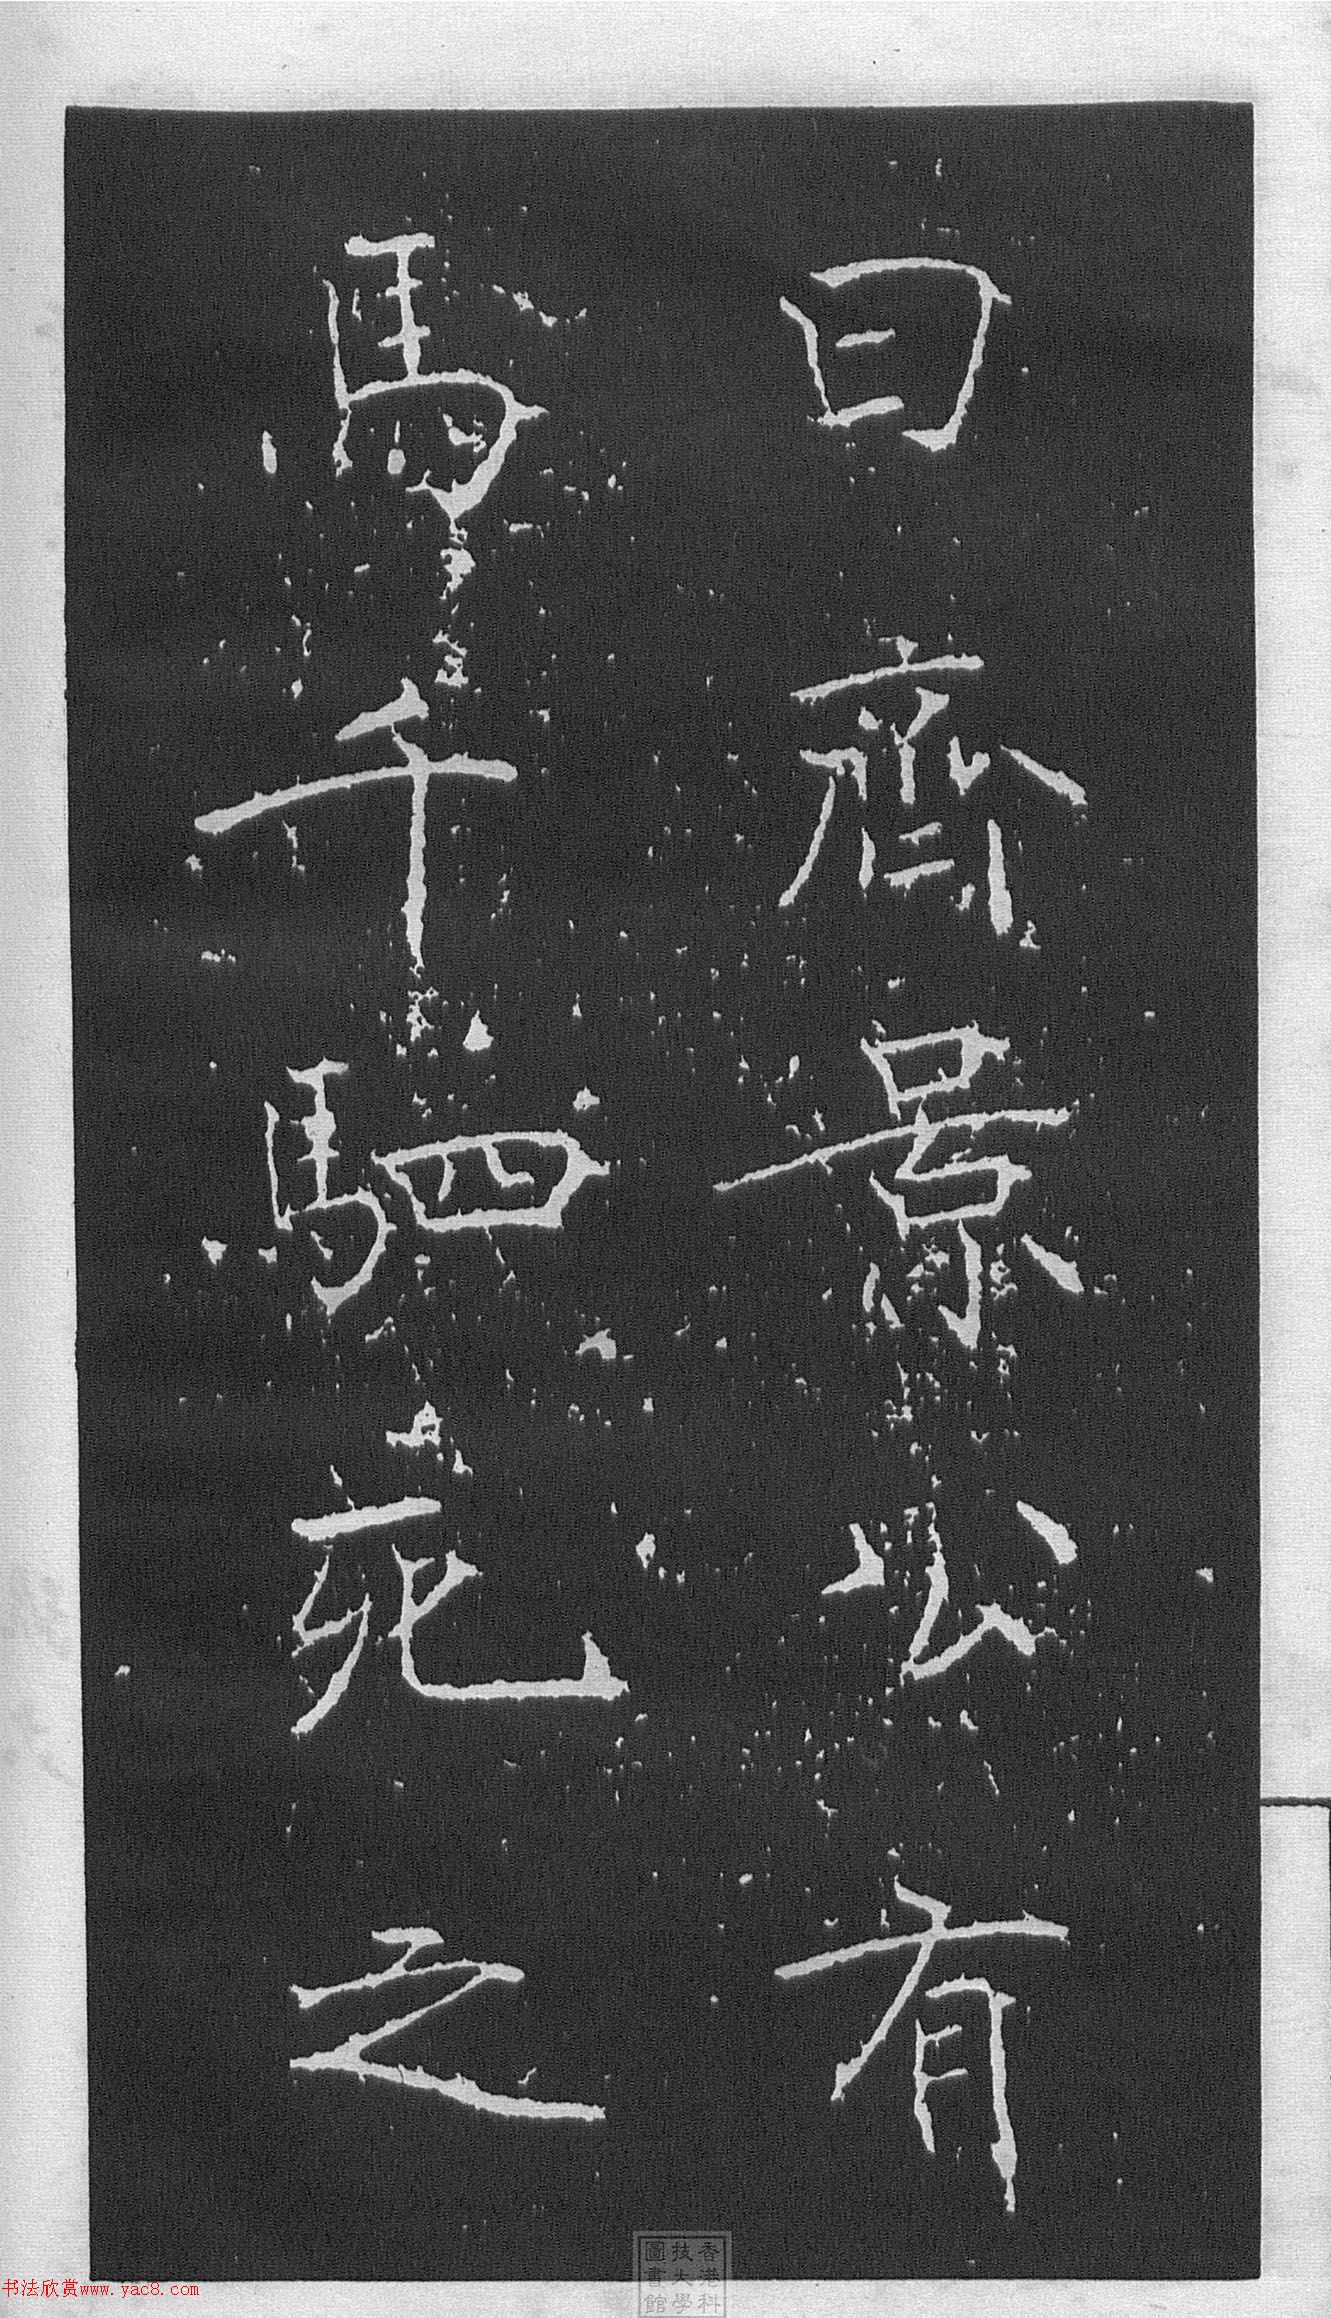 曰齊景公有
馬千駟死之
香港科
技大學
圖書館
书法欣赏www.yac8.com